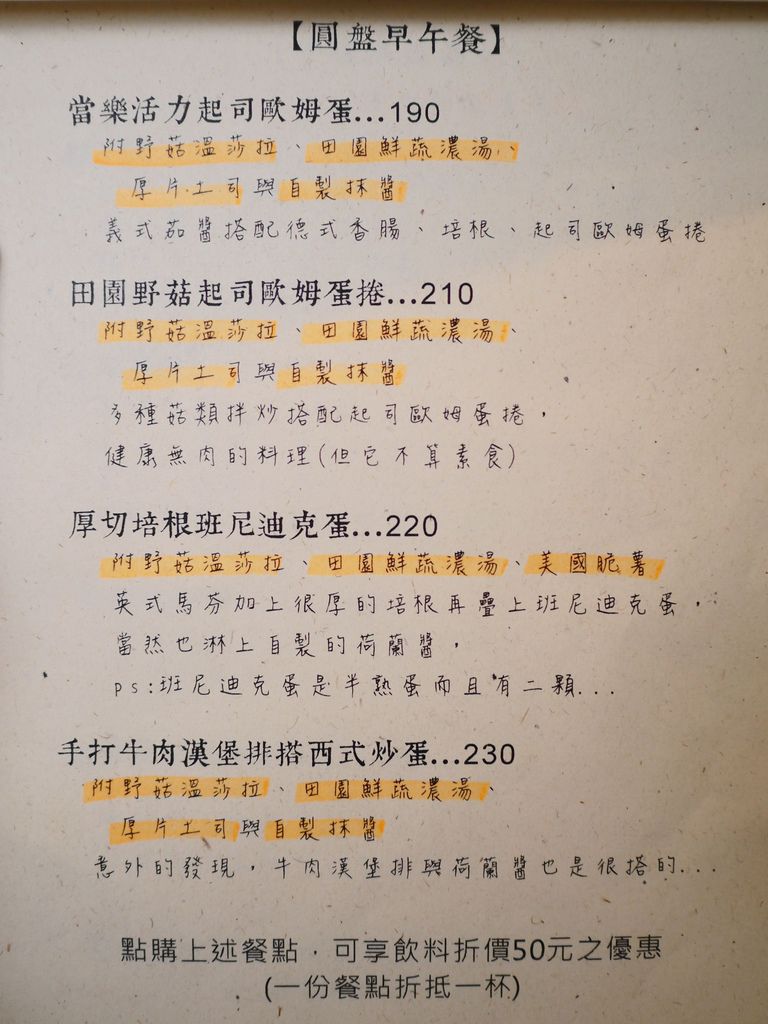 【圓盤早午餐】
當樂活力起司歐姆蛋...190
附野菇溫莎拉、田園鮮蔬濃湯、
厚片土司與自製抹醬
義式茄醬搭配德式香腸、培根、起司歐姆蛋捲
田園野菇起司歐姆蛋捲...210
附野菇溫莎拉、田園鮮蔬濃湯、
厚片土司與自製抹醬
多種菇類拌炒搭配起司歐姆蛋捲，
健康無肉的料理(但它不算素食)
厚切培根班尼迪克蛋...220
附野菇溫莎拉、田園鮮蔬濃湯、美國脆薯
英式馬芬加上很厚的培根再疊上班尼迪克蛋，
當然也淋上自製的荷蘭醬，
ps:班尼迪克蛋是半熟蛋而且有二顆...
手打牛肉漢堡排搭西式炒蛋...230
附野菇溫莎拉、田園鮮蔬濃湯、
厚片土司與自製抹醬
意外的發現，牛肉漢堡排與荷蘭醬也是很搭的...
點購上述餐點，可享飲料折價50元之優惠
(一份餐點折抵一杯)